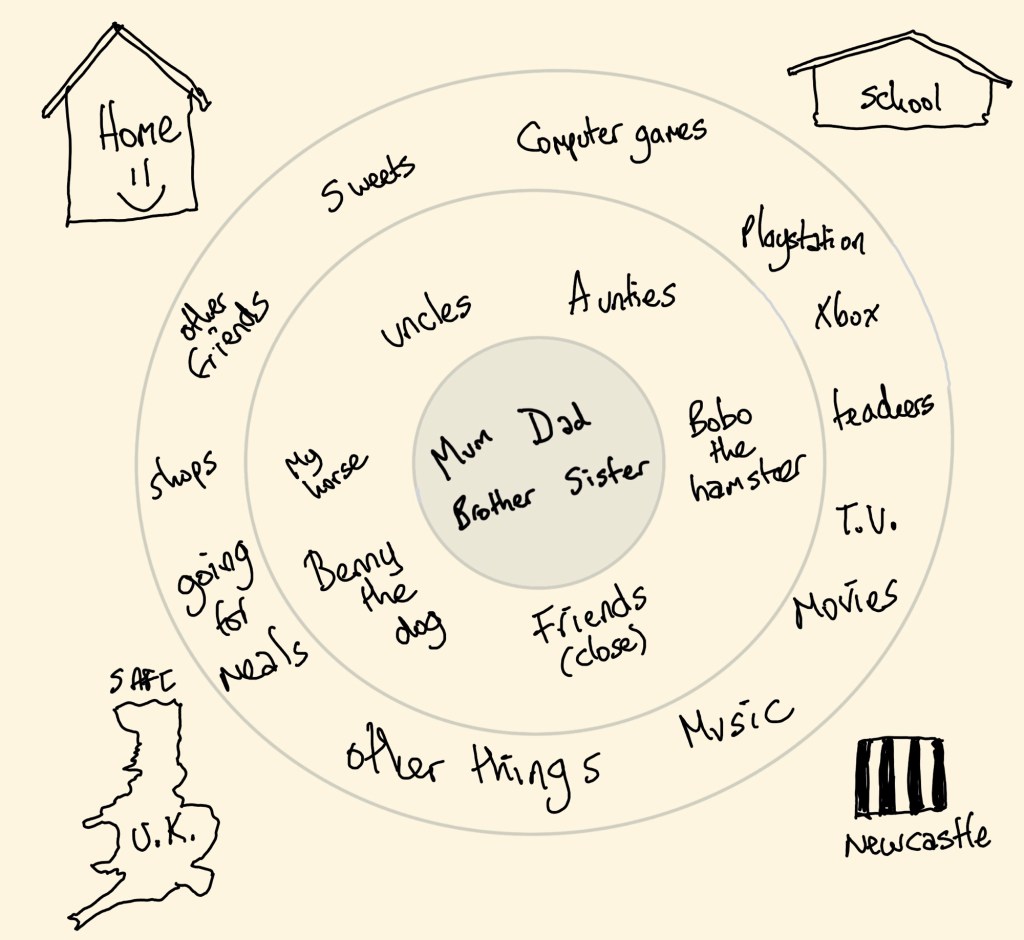 Home
School
Computer games
Sweets
Playstation
other
friends
uncles
Aunties
Xbox
Mum Dad
Brother Sister
Bobo
the
hamster
teachers
shops
My
horse
T.V.
going
for
meals
Benny
the
dog
Friends
(close)
Movies
SAFE
U.K.
other things
Music
Newcastle